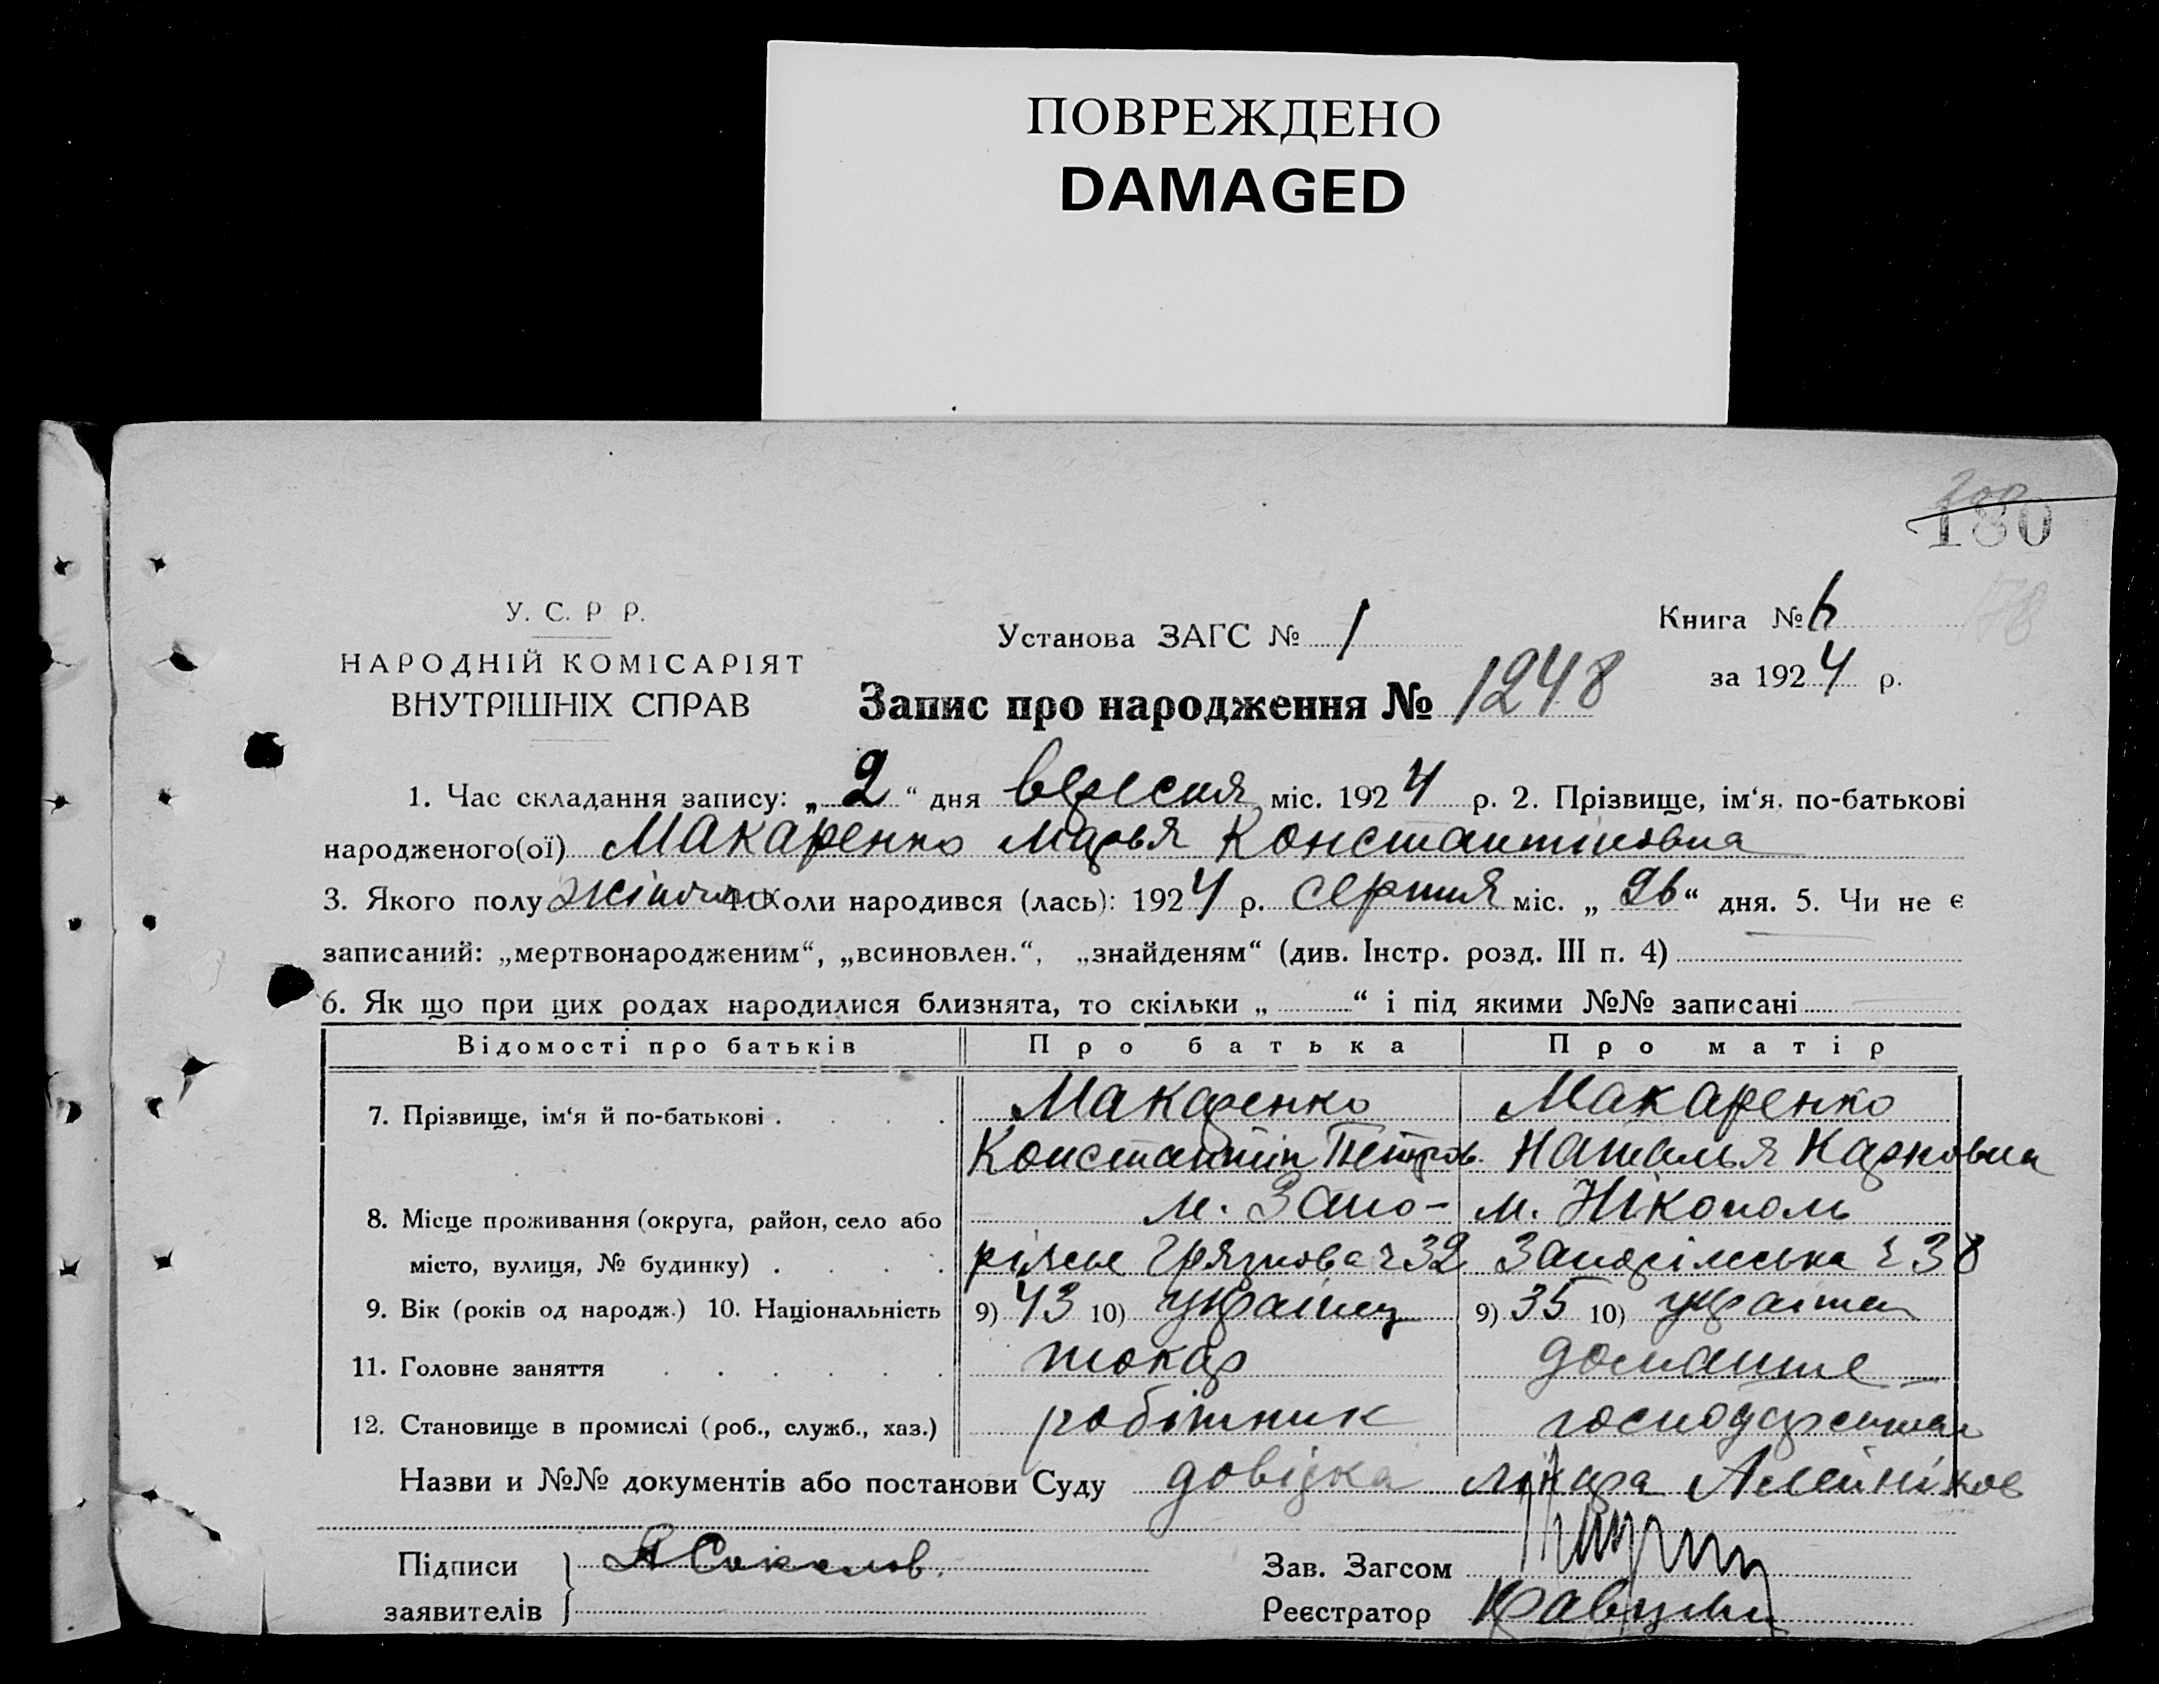 ПОВРЕЖДЕНО
DAMAGED
180
У. С. Р Р.
НАРОДНІЙ КОМІСАРІЯТ
ВНУТРІШНІХ СПРАВ
Установа ЗАГС № 1
Книга № 6
за 1924 р.
Запис про народження № 1248
1. Час складання запису: „2“ дня вересня міс. 1924 р. 2. Прізвище, ім‘я, по-батькові
народженого(ої) Макаренко Марья Константіновна
3. Якого полу жіночих 4. Коли народився (лась): 1924 р. серпня міс. „26“ дня. 5. Чи не є
записаний: „мертвонародженим“, „всиновлен.“, „знайденям“ (див. Інстр. розд. III п. 4)
6. Як що при цих родах народилися близнята, то скільки „ “ і під якими №№ записані
Відомості про батьків Про батька Про матір
7. Прізвище, ім‘я й по-батькові . . . . Макаренко Макаренко
Константін Петров. Наталья Карповна
8. Місце проживання (округа, район, село або м. Запо- м. Нікополь
місто, вулиця, № будинку) . . . . ріжье Грязнова ч 32 Запорізська ч 38
9. Вік (років од народж.) 10. Національність 9) 43 10) україиец 9) 35 10) україн
11. Головне заняття . . . . . . токар домашнє
12. Становище в промислі (роб., служб., хаз.) робітник
Назви и №№ документів або постанови Суду довідка лікаря Алейніков
Підписи Я Соколов.
заявителів
Зав. Загсом
Реєстратор